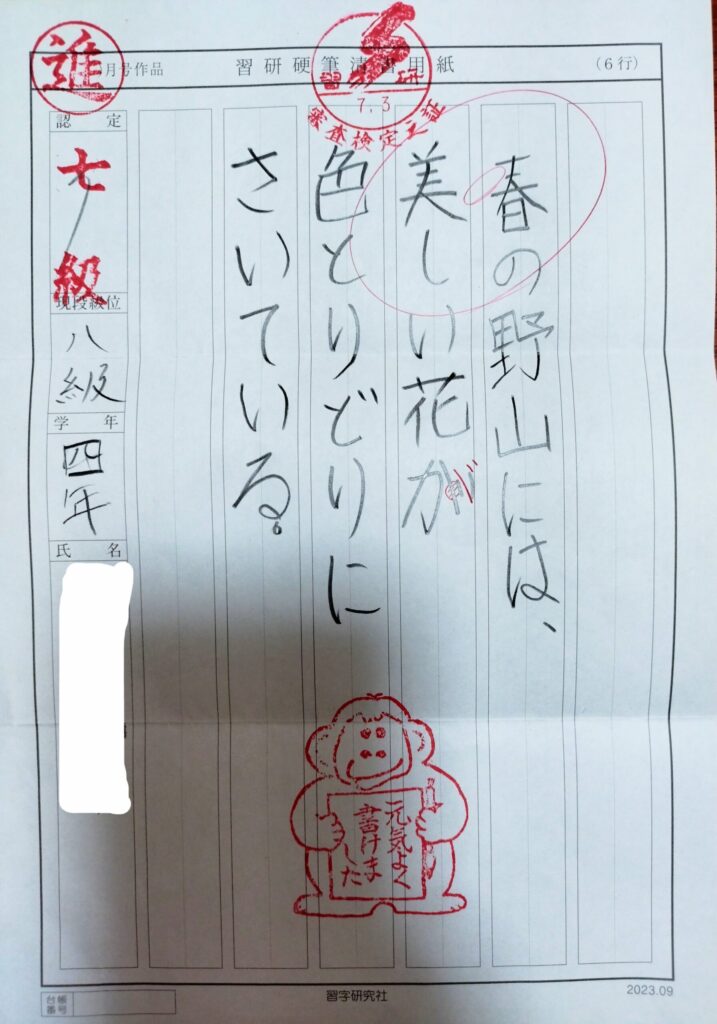 進
月号作品
習研硬筆清書用紙
(6行)
習 研
7.3
審査検定之証
春の野山には、
美しい花が
色とりどりに
さいている。
認定
七級
現段級位
八級
学年
四年
氏名
元気よく
書けま
した
台帳
番号
習字研究社
2023.09